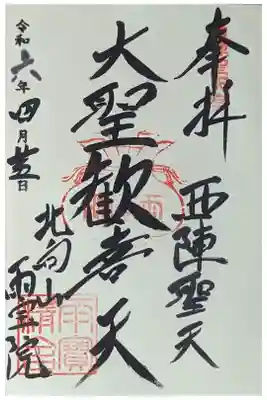 奉拝
西陣聖天
大聖歓喜天
北向山
雨宝院
令和六年四月廿五日